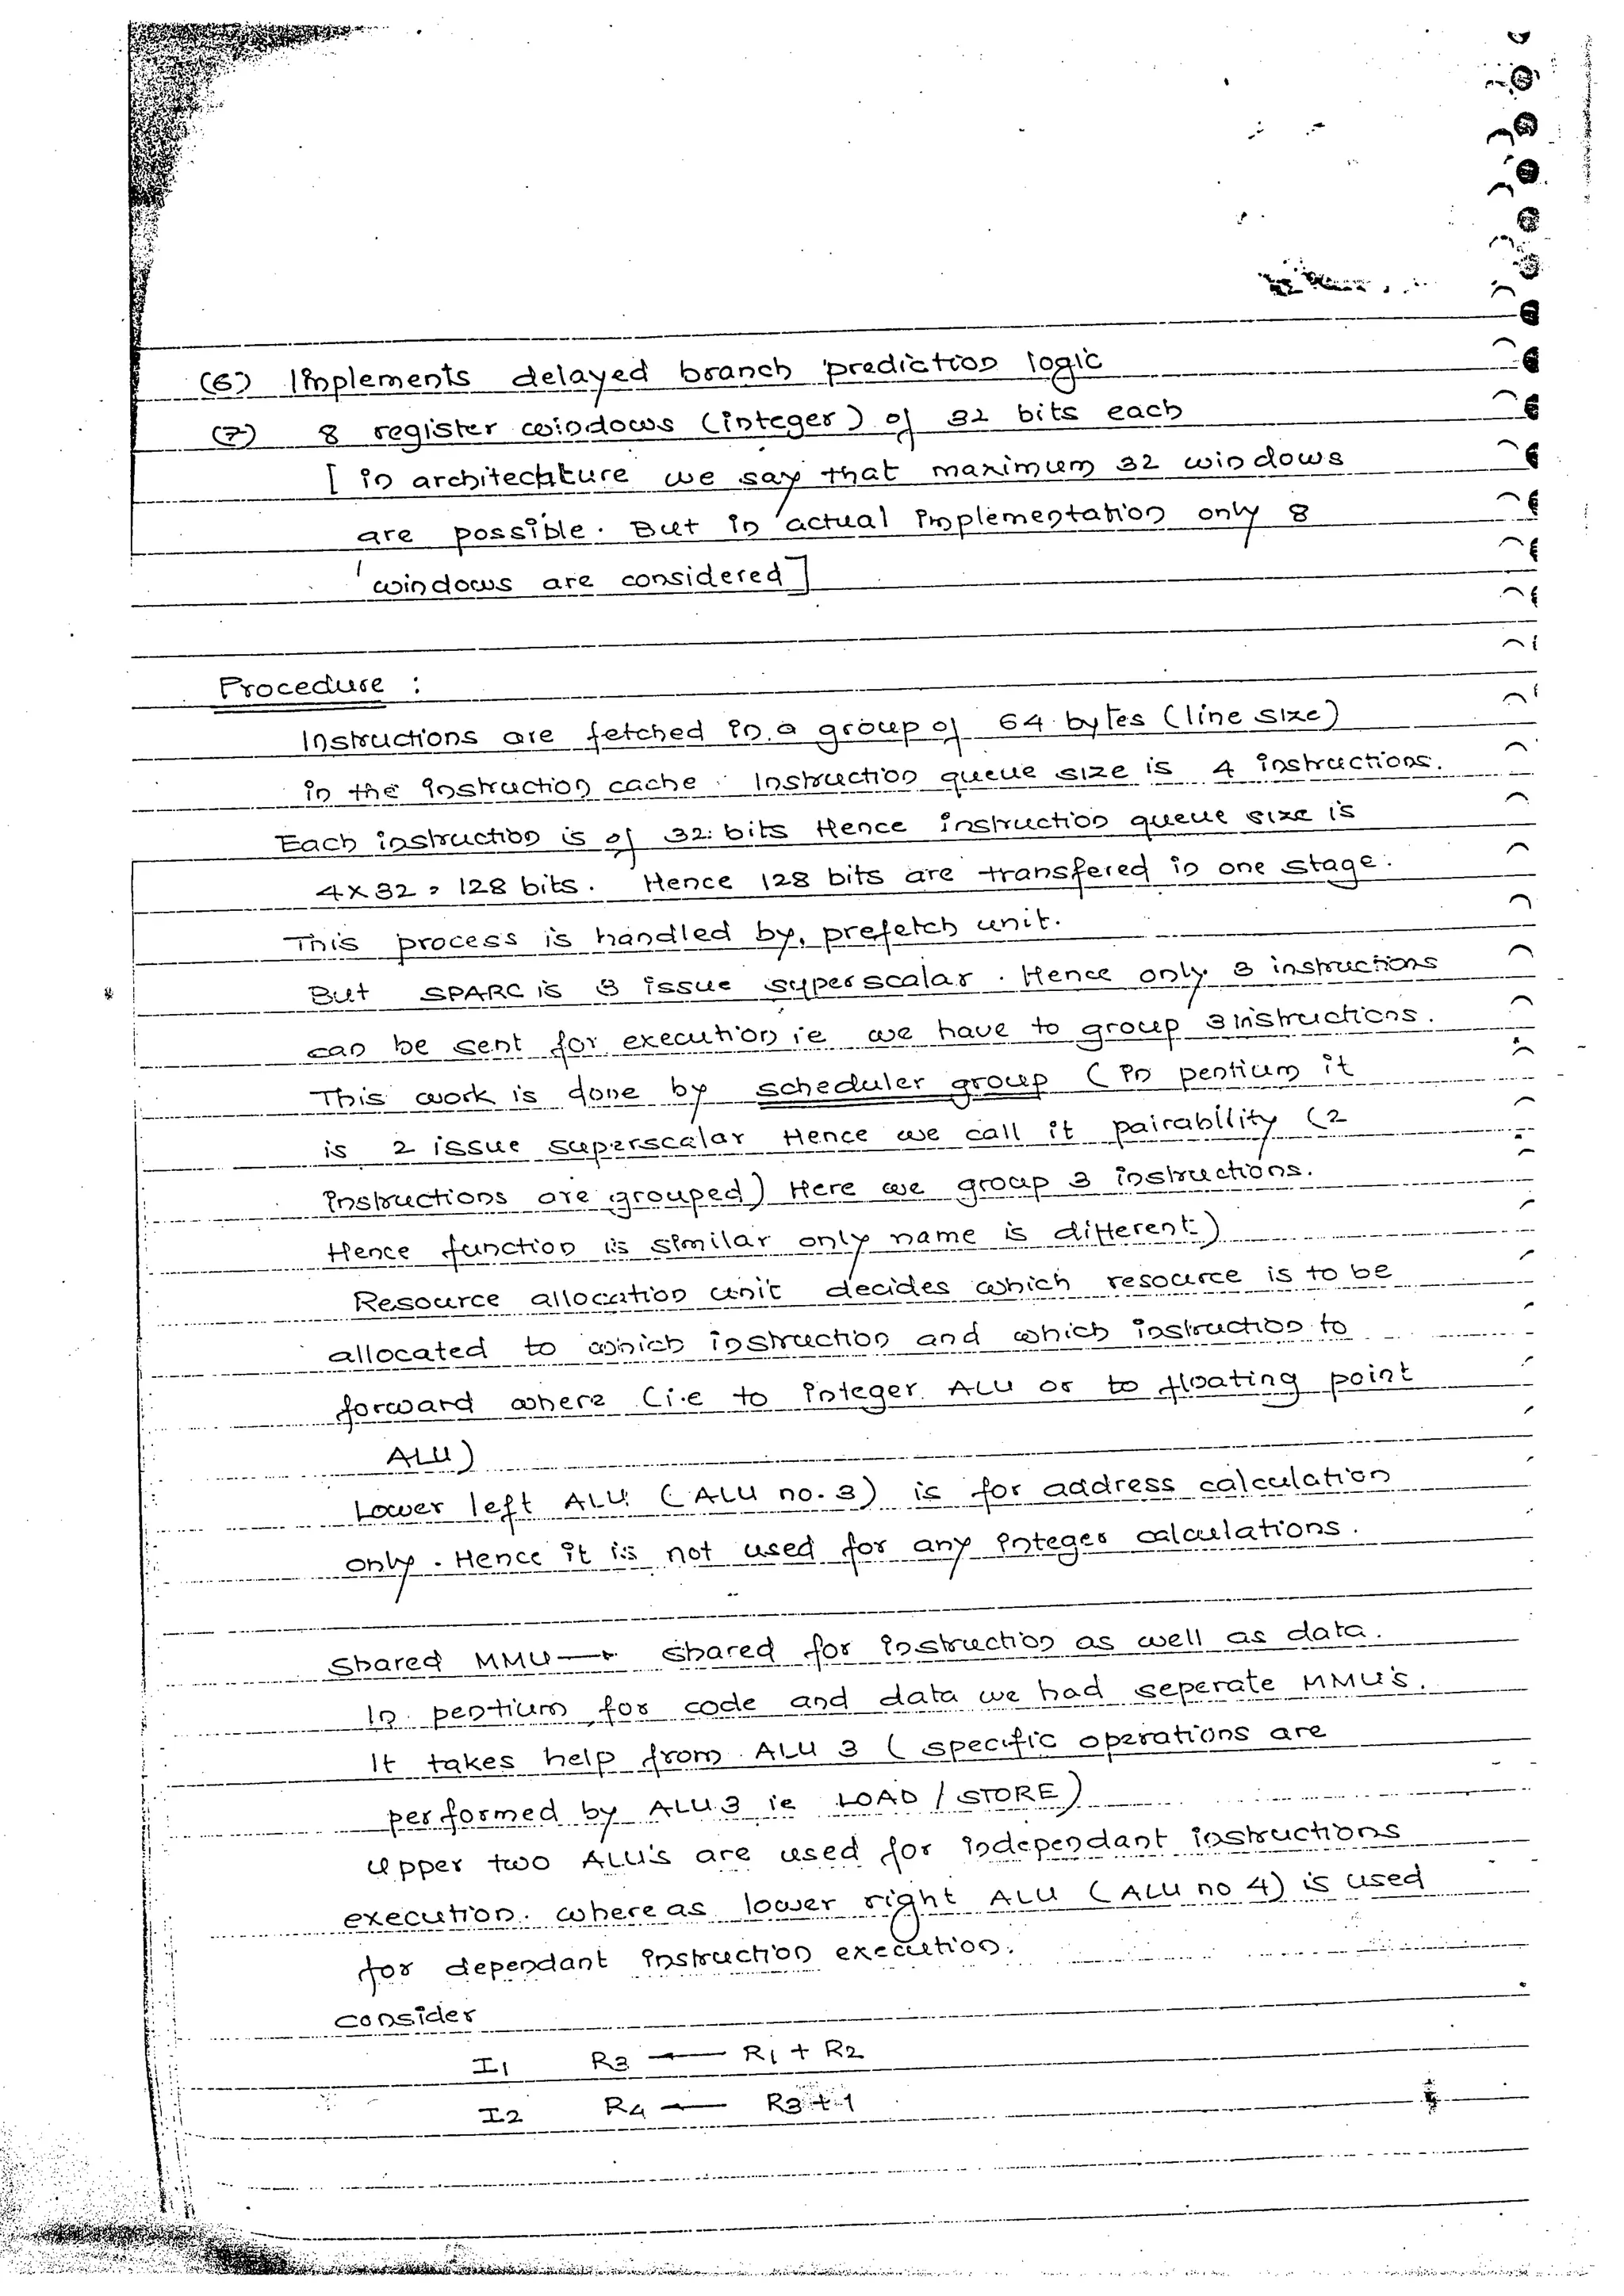 (6) Implements delayed branch prediction logic
(7) 8 register windows (integer) of 32 bits each
[ in architechture we say that maximum 32 windows
are possible. But in actual implementation only 8
windows are considered ]
Procedure :
Instructions are fetched in a group of 64 bytes (line size)
in the instruction cache. Instruction queue size is 4 instructions.
Each instruction is of 32 bits Hence instruction queue size is
4 x 32 = 128 bits. Hence 128 bits are transfered in one stage.
This process is handled by, prefetch unit.
But SPARC is 3 issue superscalar. Hence only 3 instructions
can be sent for execution ie we have to group 3 instructions.
This work is done by scheduler group ( In pentium it
is 2 issue superscalar Hence we call it pairability (2
instructions are grouped) Here we group 3 instructions.
Hence function is similar only name is different)
Resource allocation unit decides which resource is to be
allocated to which instruction and which instruction to
forward where (i.e to integer ALU or to floating point
ALU)
Lower left ALU (ALU no. 3) is for address calculation
only. Hence it is not used for any integer calculations.
Shared MMU → shared for instruction as well as data.
In pentium for code and data we had seperate MMU's.
It takes help from ALU 3 ( specific operations are
performed by ALU 3 ie LOAD / STORE)
Upper two ALU's are used for independant instructions
execution. where as lower right ALU (ALU no 4) is used
for dependant instruction execution.
consider
I1 R3 ← R1 + R2
I2 R4 ← R3 + 1